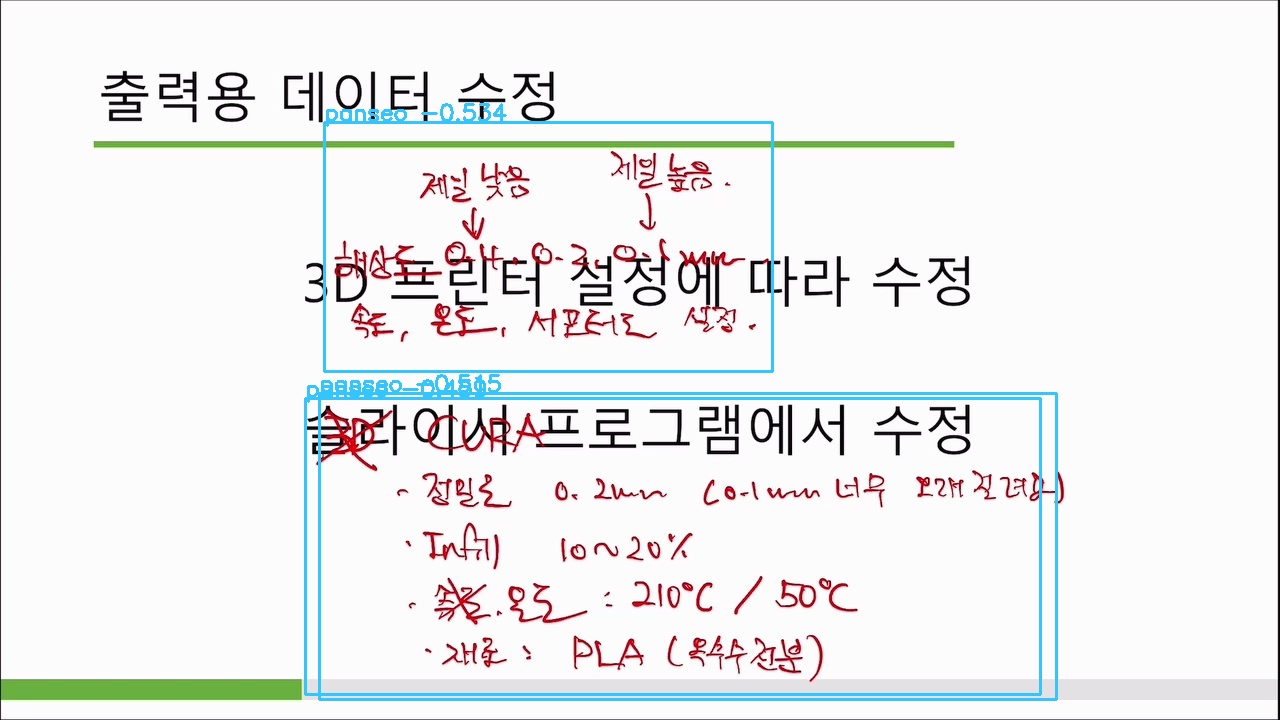 출력용 데이터 수정
panseo -0.534
제일 낮음 제일 높음.
↓ ↓
해상도 0.4, 0.2, 0.1mm.
3D 프린터 설정에 따라 수정
속도, 온도, 서포터도 설정.
panseo -0.515
슬라이서 프로그램에서 수정
3D CURA
· 정밀도 0.2mm (0.1mm 너무 오래 걸려요)
· Infill 10~20%
· 속도. 온도 : 210°C / 50°C
· 재료 : PLA (옥수수 전분)